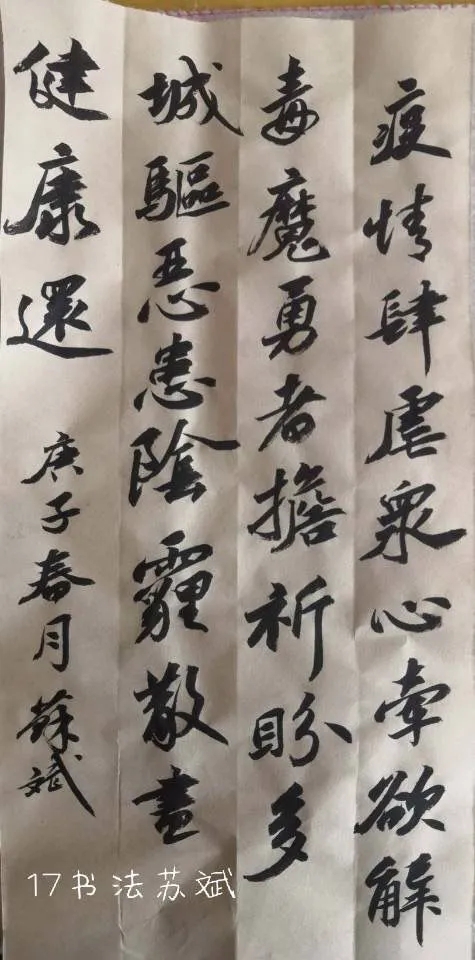 疫情肆虐衆心牽欲解
毒魔勇者擔祈盼多
城驅惡患陰霾散盡
健康還
庚子春月蘇斌
17书法苏斌